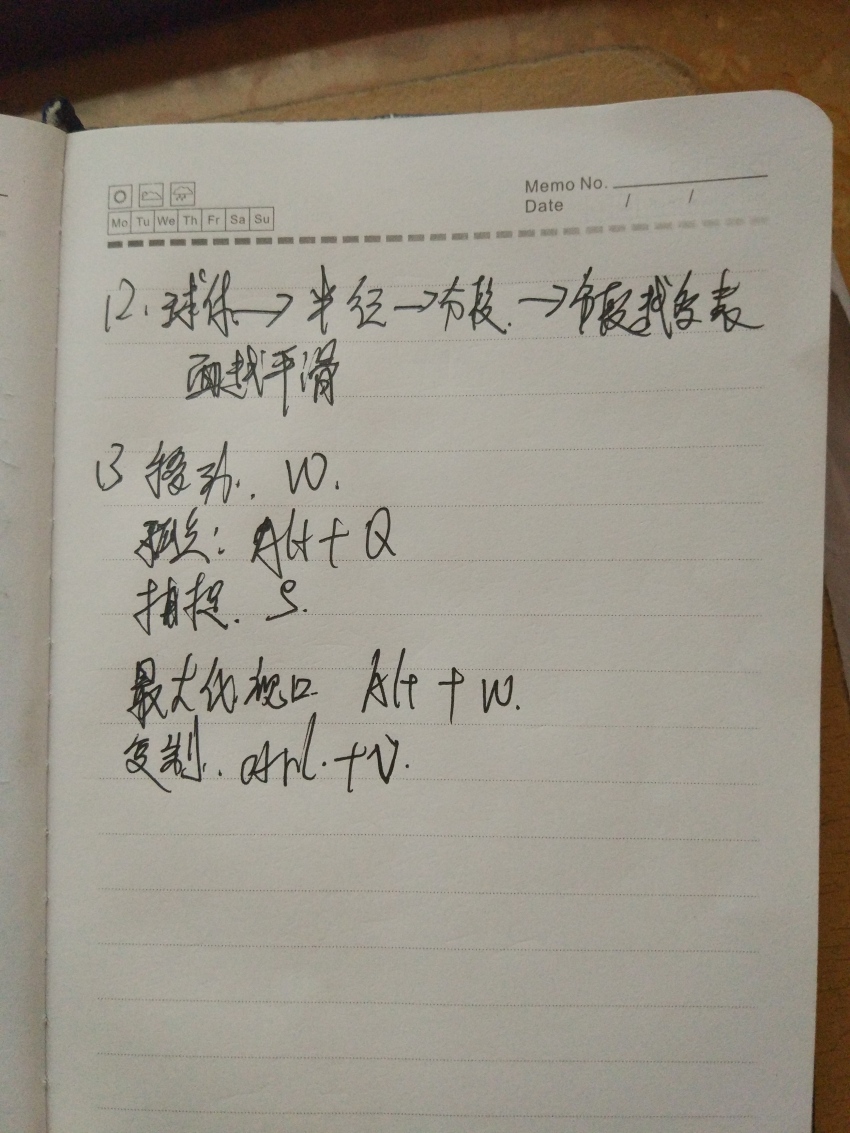 Memo No.
Date / /
Mo Tu We Th Fr Sa Su
12. 球体→半径→分段.→分段越多表
面越平滑
13 移动. W.
孤立: Alt+Q
捕捉. S.
最大化视口 Alt+W.
复制. ctrl.+V.